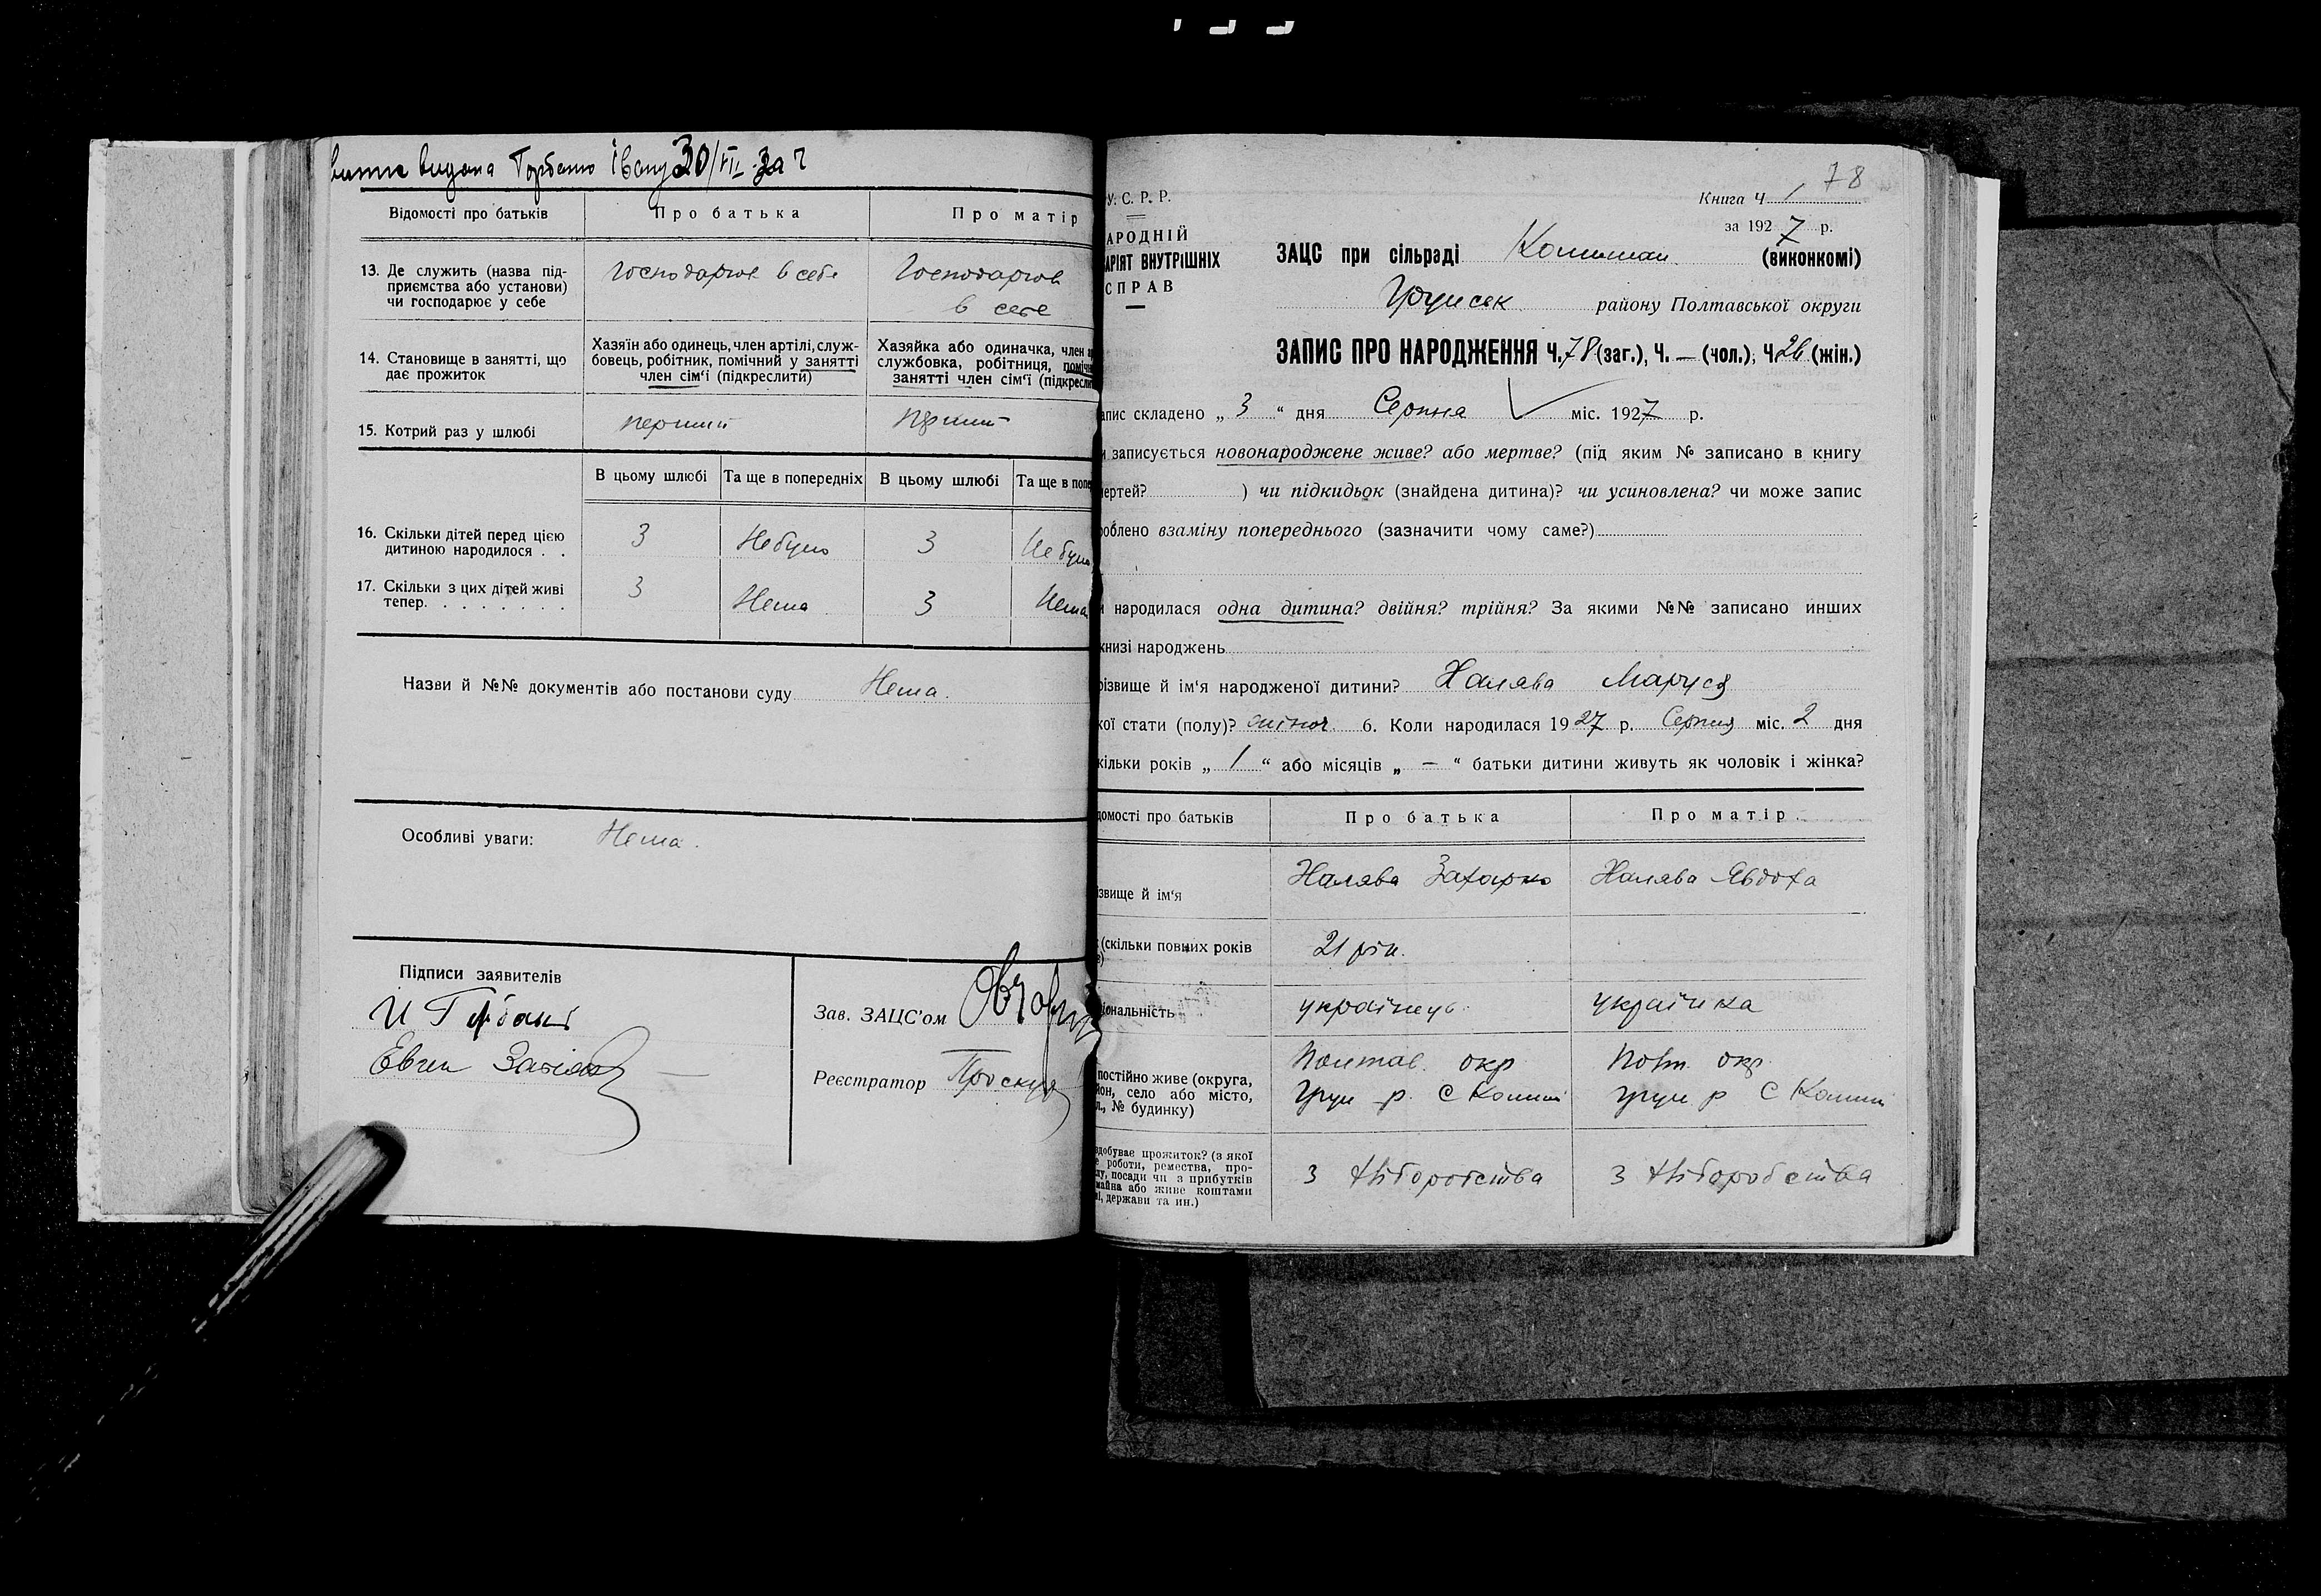 видана Горбаню Івану 30/VII
Відомості про батьків
Про батька
Про матір
13. Де служить (назва під-
приємства або установи)
чи господарює у себе
Господарює в себе
Господарює
в себе
14. Становище в занятті, що
дає прожиток
Хазяїн або одинець, член артілі, служ-
бовець, робітник, помічний у занятті
член сім'ї (підкреслити)
Хазяйка або одиначка, член
службовка, робітниця,
занятті член сім'ї
15. Котрий раз у шлюбі
перший
перший
В цьому шлюбі
Та ще в попередніх
В цьому шлюбі
Та ще в
16. Скільки дітей перед цією
дитиною народилося . .
3
Не було
3
Не було
17. Скільки з цих дітей живі
тепер. . . . . . . .
3
Нема
3
Нема
Назви й №№ документів або постанови суду Нема.
Особливі уваги: Нема.
Підписи заявителів
Зав. ЗАЦС'ом
Евген
Реєстратор
78
У. С. Р. Р.
АРОДНІЙ
АРІЯТ ВНУТРІШНІХ
СПРАВ
Книга Ч 1
за 1927 р.
ЗАЦС при сільраді (виконкомі)
району Полтавської округи
ЗАПИС ПРО НАРОДЖЕННЯ Ч. 78 (заг.), Ч. — (чол.), Ч. 26 (жін.)
апис складено „ 3 “ дня Серпня міс. 1927 р.
и записується новонароджене живе? або мертве? (під яким № записано в книгу
мертей? ) чи підкидьок (знайдена дитина)? чи усиновлена? чи може запис
роблено взаміну попереднього (зазначити чому саме?)
и народилася одна дитина? двійня? трійня? За якими №№ записано инших
книзі народжень
різвище й ім'я народженої дитини? Халява Маруся
кої стати (полу)? жіноч. 6. Коли народилася 1927 р. Серпня міс. 2 дня
кільки років „ 1 “ або місяців „ — “ батьки дитини живуть як чоловік і жінка?
домості про батьків
Про батька
Про матір
ізвище й ім'я
Халява Захарко
Халява Явдоха
(скільки повних років
21 рік.
іональність
українець
українка
постійно живе (округа,
йон, село або місто,
л., № будинку)
Полтав. окр
Грун р. С Комиш
Полт. окр.
Грун р С Комиш
здобуває прожиток? (з якої
е роботи, ремества, про-
ду, посади чи з прибутків
майна або живе коштами
ї, держави та ин.)
З хліборобства
З хліборобства